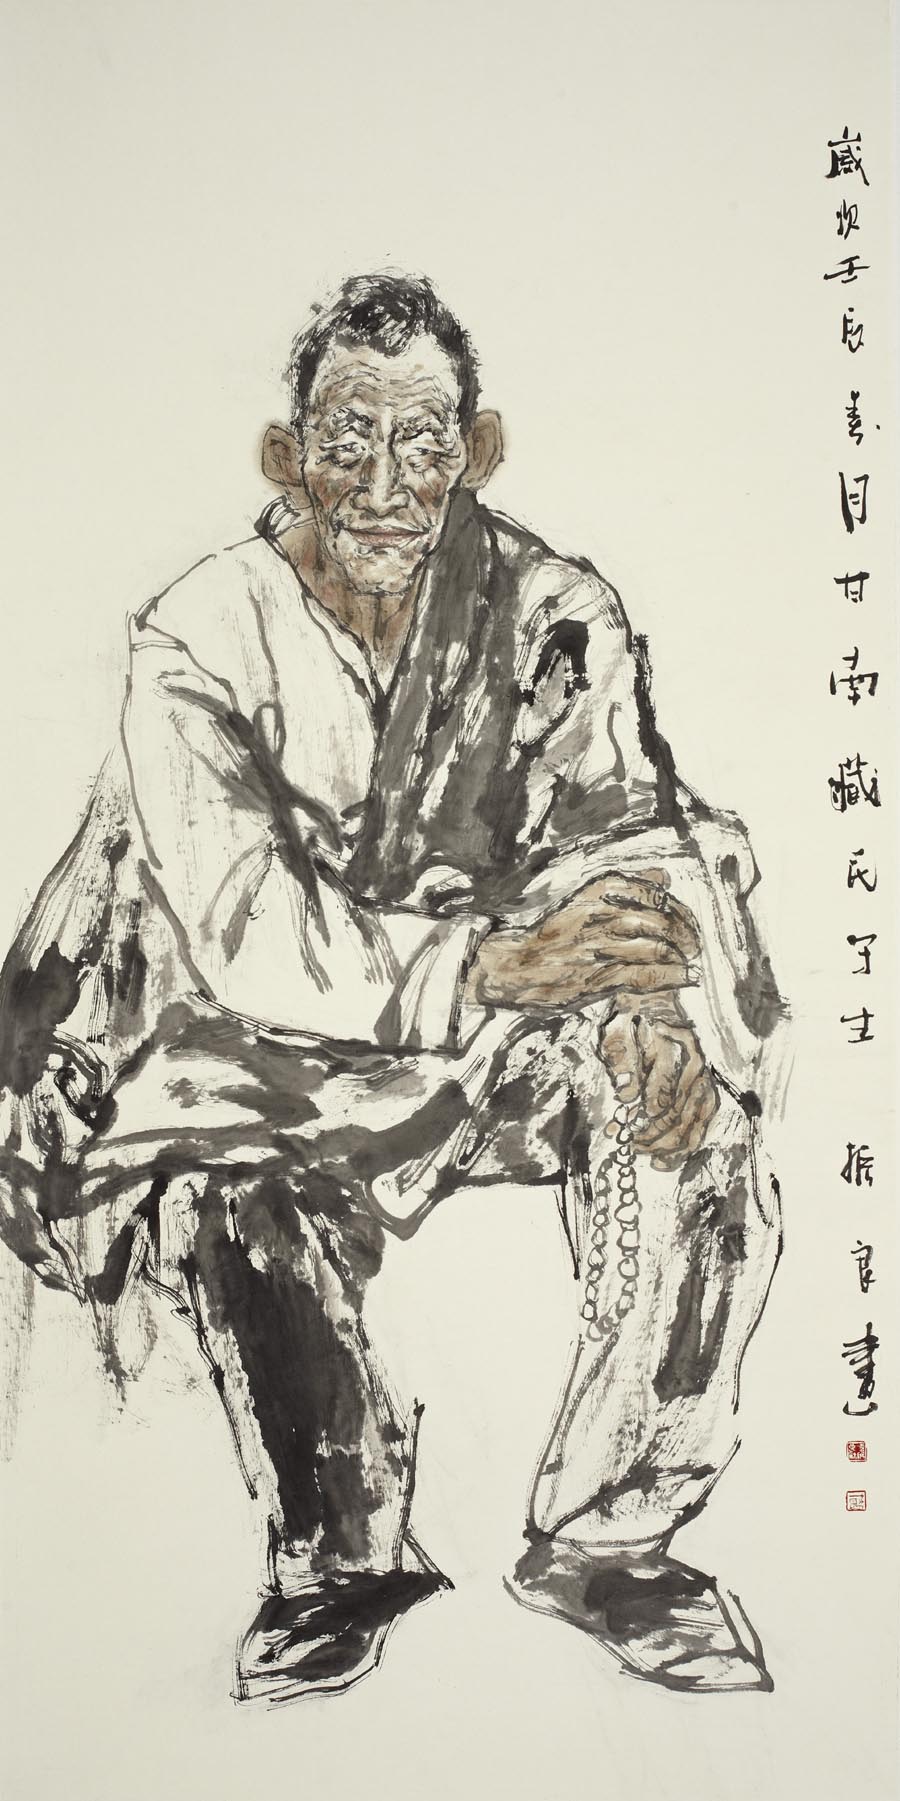 歲次壬辰春月甘南藏民写生 振良畫